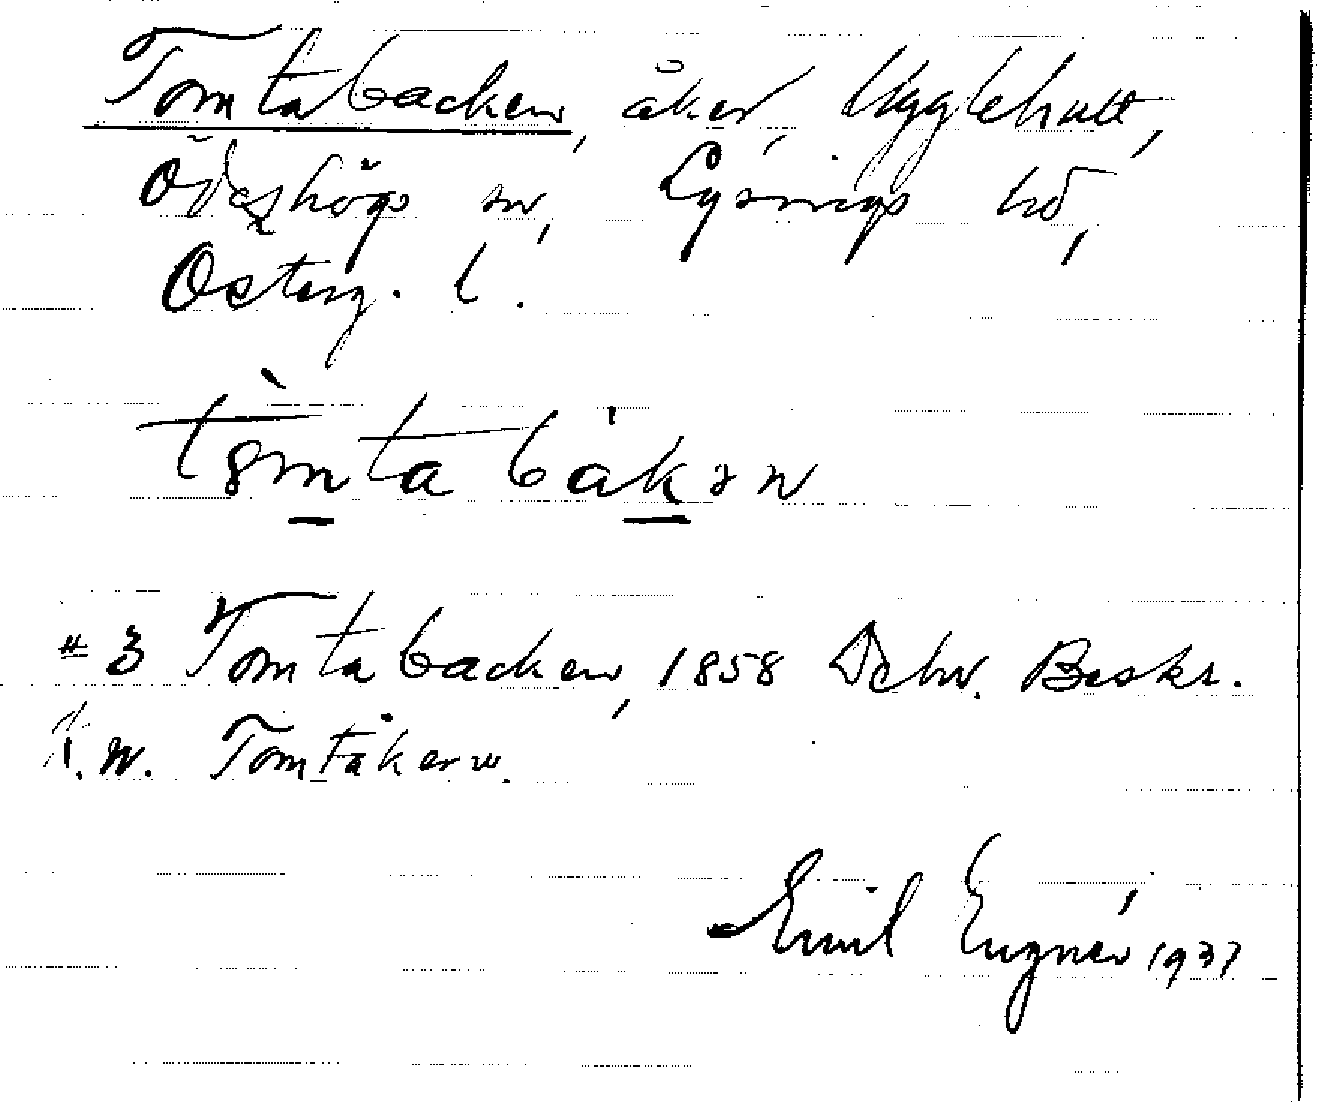 Tomtabacken, åker, Ugglehult,
Ödeshögs sn, Lysings hd,
Österg. l.
tòmtabákən
# 3 Tomtabacken, 1858 Dehv. Beskr.
n. Tomtåkern.
Emil Engnér 1937